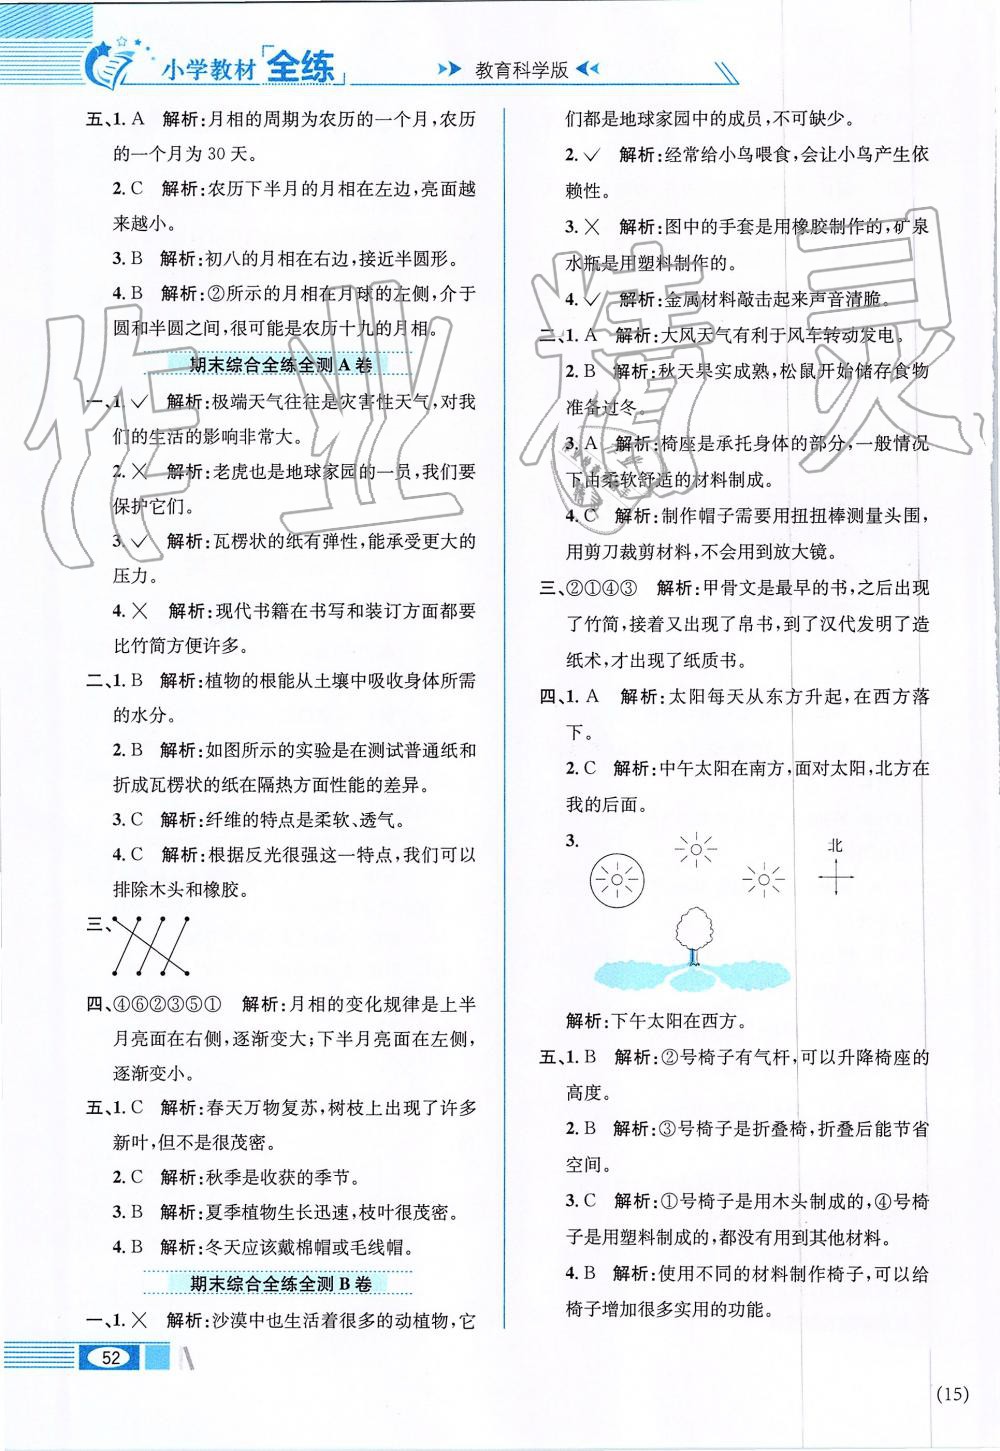 小学教材「全练」
教育科学版
五、1. A 解析:月相的周期为农历的一个月,农历
的一个月为 30 天。
2. C 解析:农历下半月的月相在左边,亮面越
来越小。
3. B 解析:初八的月相在右边,接近半圆形。
4. B 解析:②所示的月相在月球的左侧,介于
圆和半圆之间,很可能是农历十九的月相。
期末综合全练全测 A 卷
一、1. ✓ 解析:极端天气往往是灾害性天气,对我
们的生活的影响非常大。
2. ✕ 解析:老虎也是地球家园的一员,我们要
保护它们。
3. ✓ 解析:瓦楞状的纸有弹性,能承受更大的
压力。
4. ✕ 解析:现代书籍在书写和装订方面都要
比竹简方便许多。
二、1. B 解析:植物的根能从土壤中吸收身体所需
的水分。
2. B 解析:如图所示的实验是在测试普通纸和
折成瓦楞状的纸在隔热方面性能的差异。
3. C 解析:纤维的特点是柔软、透气。
4. C 解析:根据反光很强这一特点,我们可以
排除木头和橡胶。
三、
四、④⑥②③⑤① 解析:月相的变化规律是上半
月亮面在右侧,逐渐变大;下半月亮面在左侧,
逐渐变小。
五、1. C 解析:春天万物复苏,树枝上出现了许多
新叶,但不是很茂密。
2. C 解析:秋季是收获的季节。
3. B 解析:夏季植物生长迅速,枝叶很茂密。
4. B 解析:冬天应该戴棉帽或毛线帽。
期末综合全练全测 B 卷
一、1. ✕ 解析:沙漠中也生活着很多的动植物,它
们都是地球家园中的成员,不可缺少。
2. ✓ 解析:经常给小鸟喂食,会让小鸟产生依
赖性。
3. ✕ 解析:图中的手套是用橡胶制作的,矿泉
水瓶是用塑料制作的。
4. ✓ 解析:金属材料敲击起来声音清脆。
二、1. A 解析:大风天气有利于风车转动发电。
2. B 解析:秋天果实成熟,松鼠开始储存食物
准备过冬。
3. A 解析:椅座是承托身体的部分,一般情况
下由柔软舒适的材料制成。
4. C 解析:制作帽子需要用扭扭棒测量头围,
用剪刀裁剪材料,不会用到放大镜。
三、②①④③ 解析:甲骨文是最早的书,之后出现
了竹简,接着又出现了帛书,到了汉代发明了造
纸术,才出现了纸质书。
四、1. A 解析:太阳每天从东方升起,在西方落
下。
2. C 解析:中午太阳在南方,面对太阳,北方在
我的后面。
3.
北
解析:下午太阳在西方。
五、1. B 解析:②号椅子有气杆,可以升降椅座的
高度。
2. B 解析:③号椅子是折叠椅,折叠后能节省
空间。
3. C 解析:①号椅子是用木头制成的,④号椅
子是用塑料制成的,都没有用到其他材料。
4. B 解析:使用不同的材料制作椅子,可以给
椅子增加很多实用的功能。
52
(15)
作业精灵